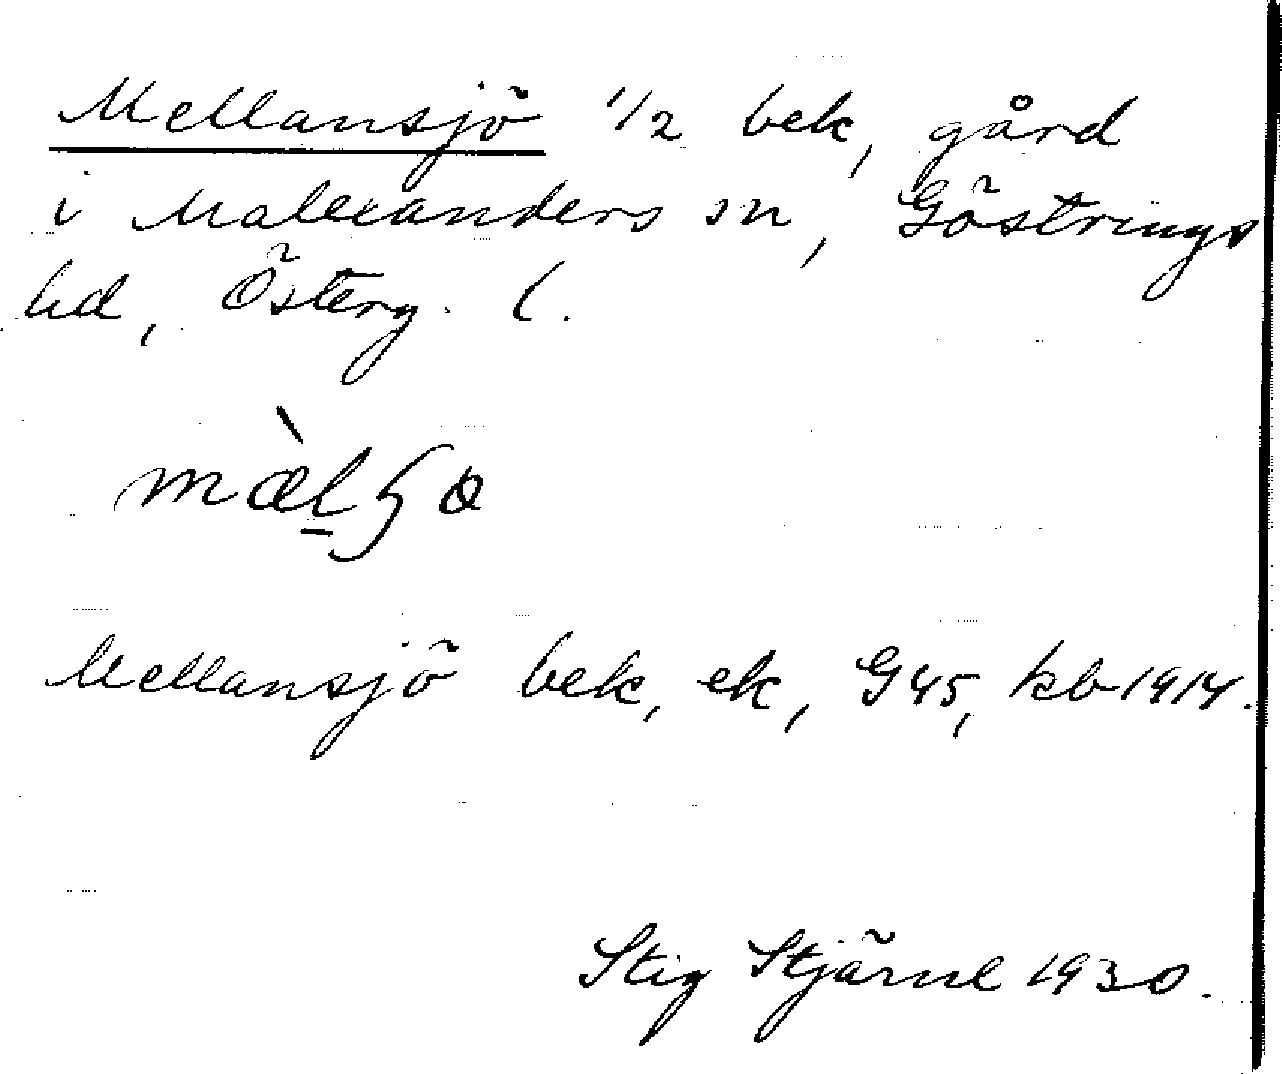 Mellansjö 1/2 bek, gård
i Malexanders sn, Göstrings
hd, Österg. l.
mæ̀lʂø
Mellansjö bek, ek, G45, kb 1914.
Stig Stjärne 1930.